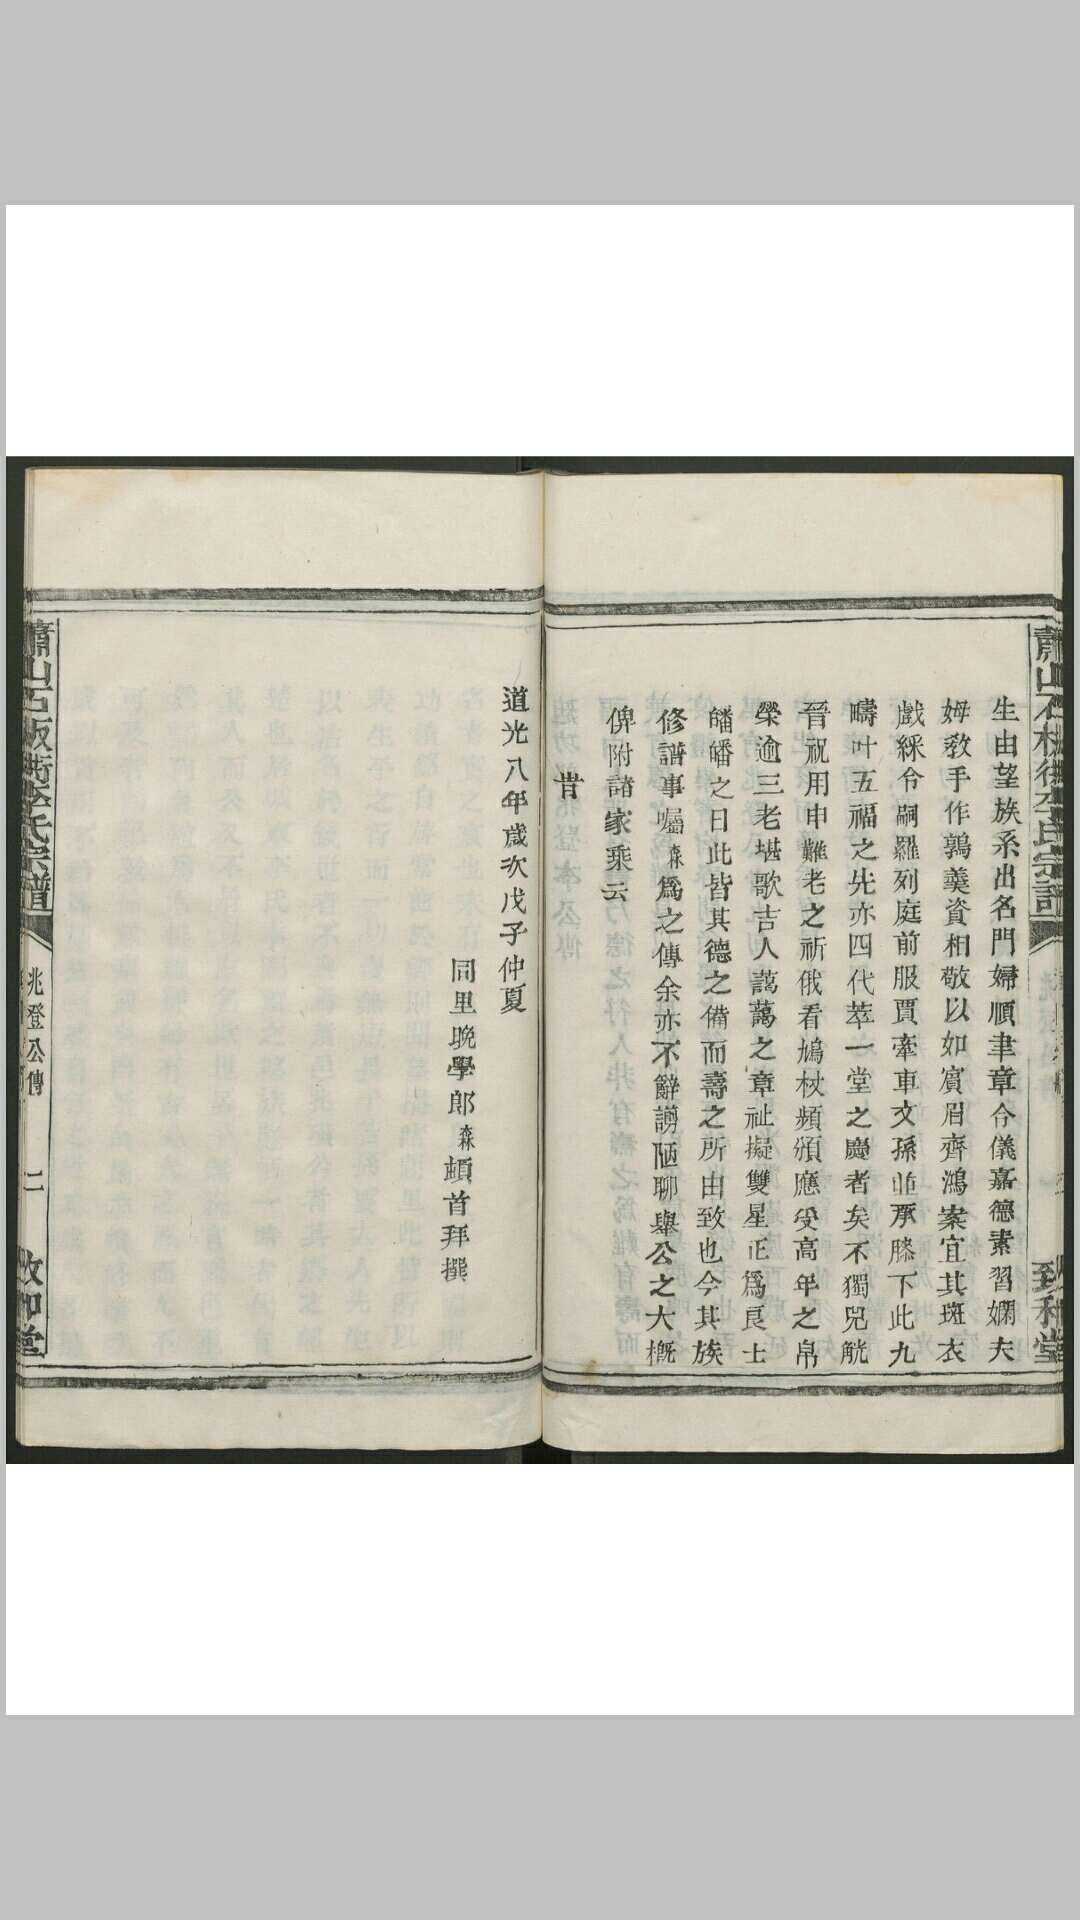 生由望族系出名門婦順聿章令儀嘉德素習嫻夫
姆敎手作鶉羹資相敬以如賓眉齊鴻案宜其斑衣
戲綵令嗣羅列庭前服賈牽車文孫並承膝下此九
疇叶五福之先亦四代萃一堂之慶者矣不獨兕觥
晉祝用申難老之祈俄看鳩杖頻頒應受高年之帛
榮逾三老堪歌吉人藹藹之章祉擬雙星正爲良士
皤皤之日此皆其德之備而壽之所由致也今其族
修譜事囑森爲之傳余亦不辭謭陋聊舉公之大槪
俾附諸家乘云
旹
道光八年歲次戊子仲夏
同里晩學郎森頓首拜撰
蕭山石板街李氏宗譜
兆登公傳
二
致和堂